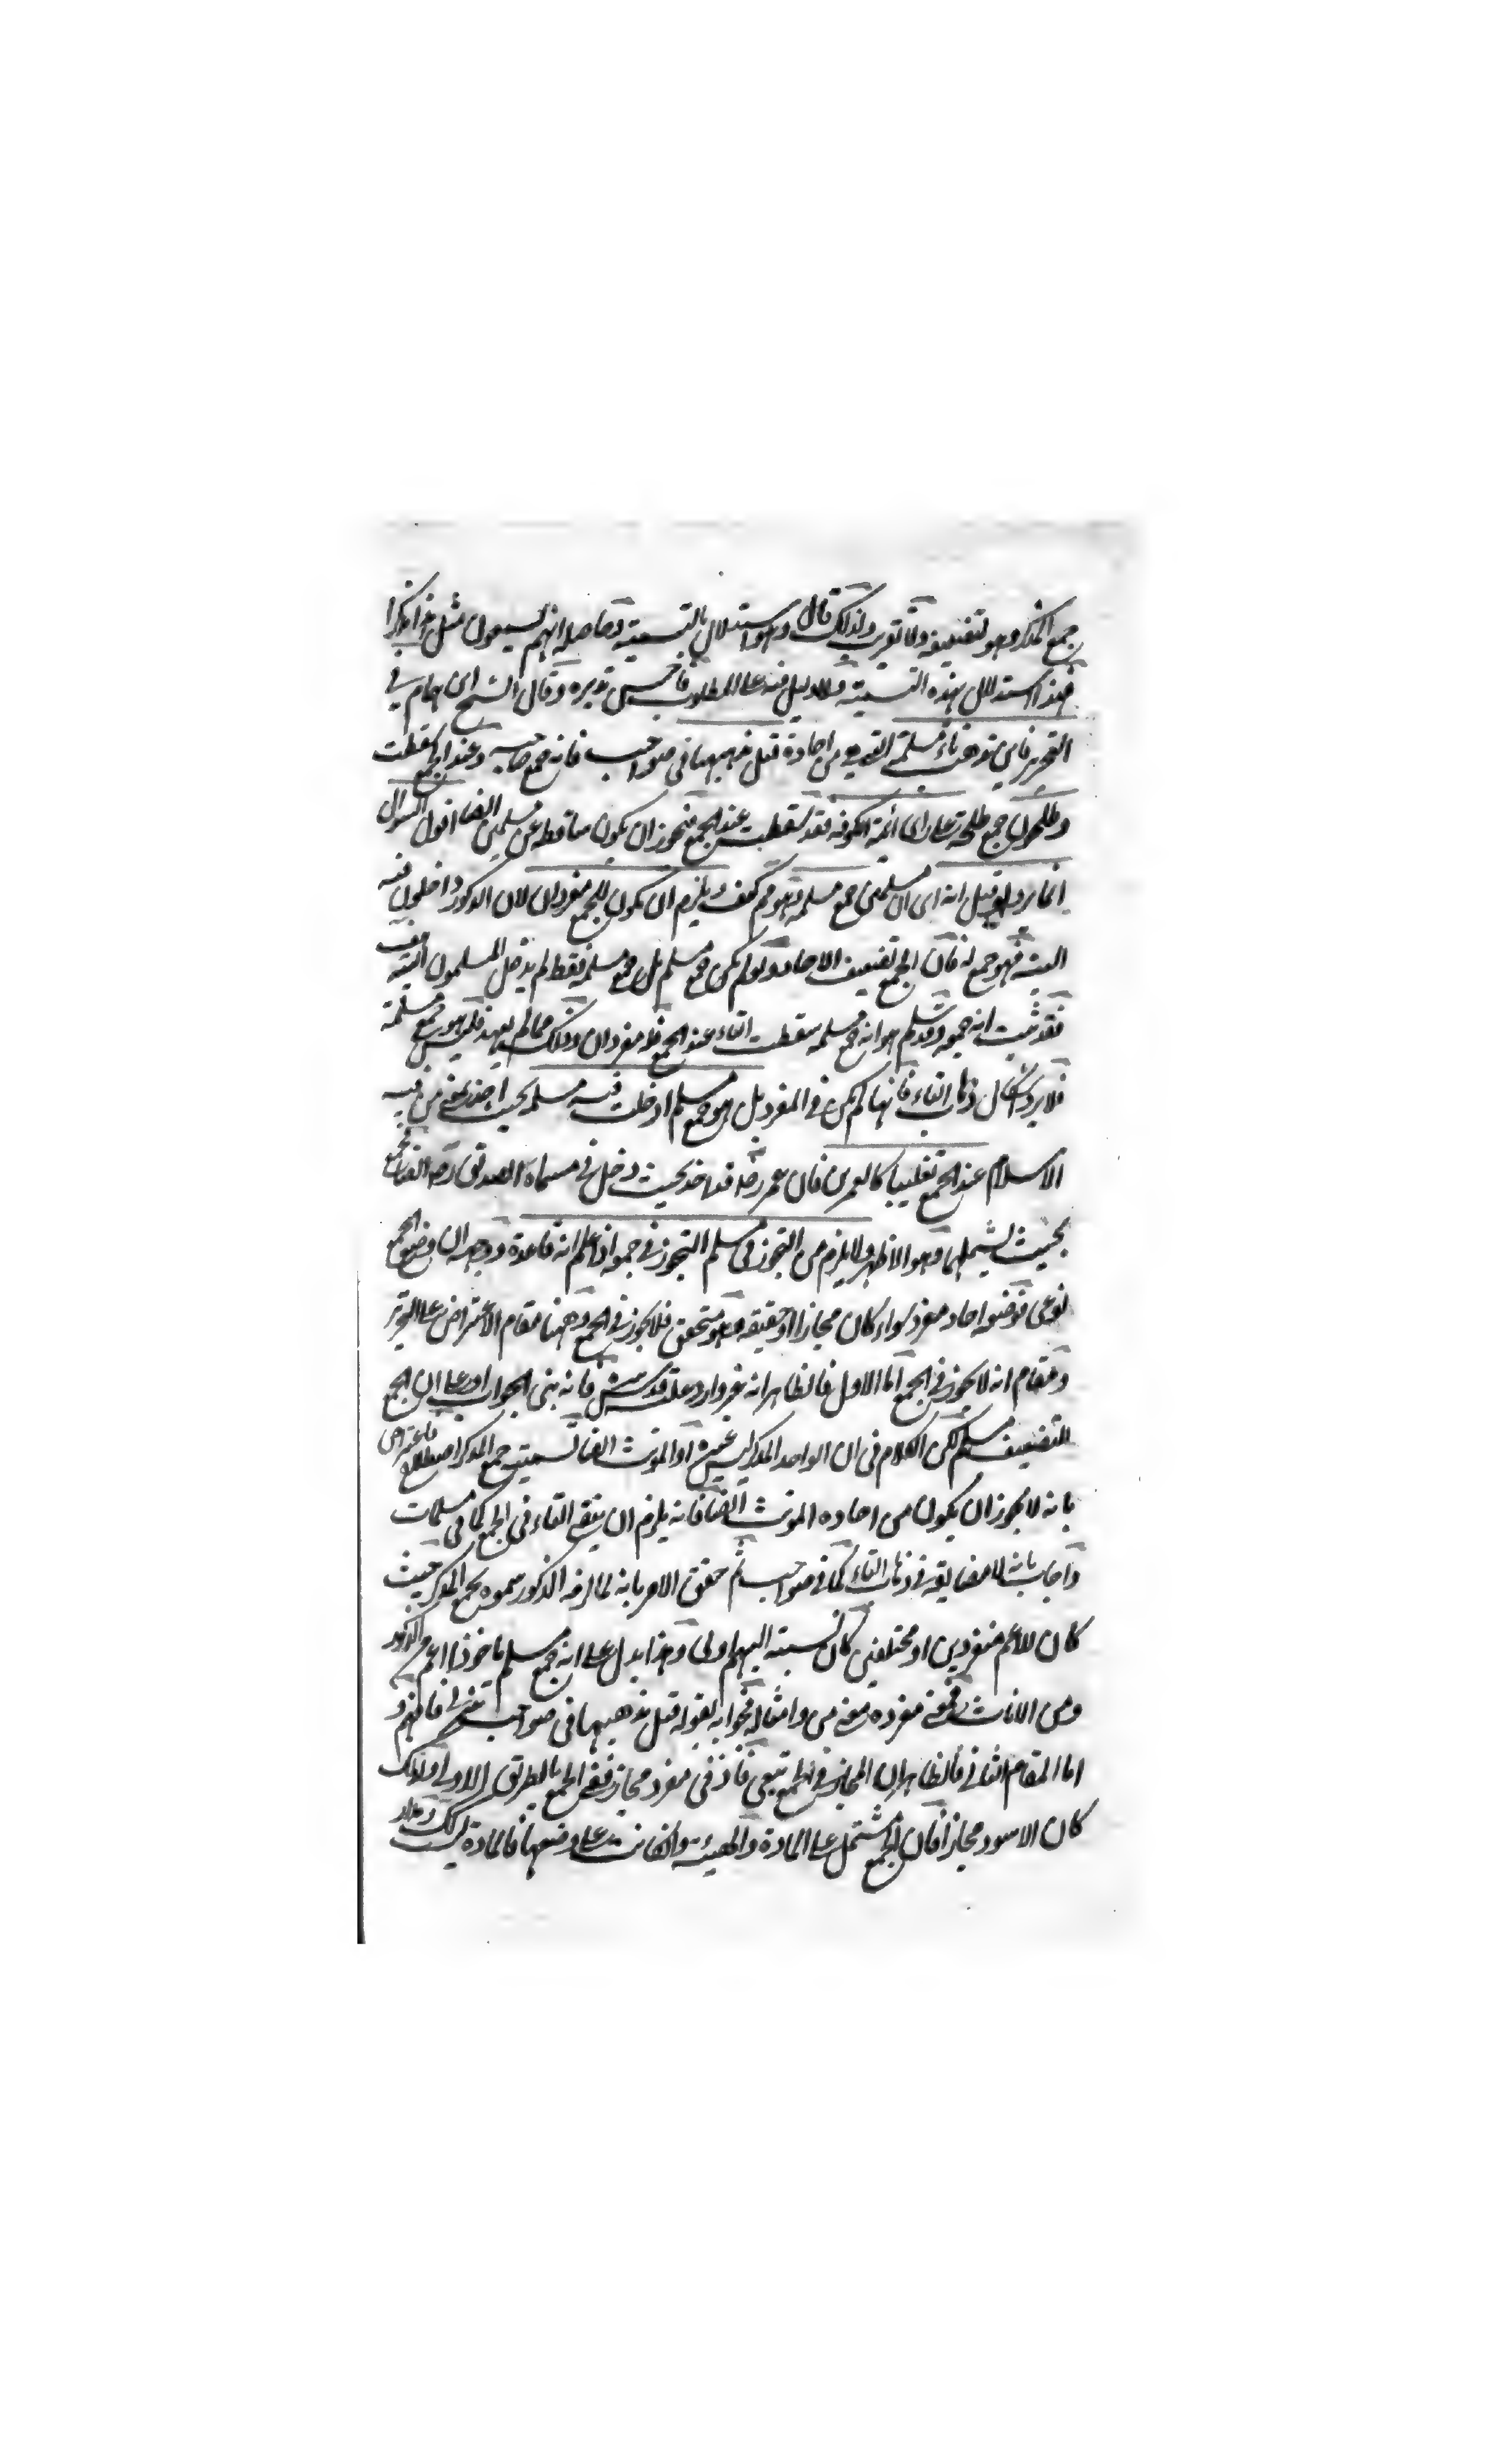 جمع المذكر وهو لتضعيفه ولا تقريب ولذلك قال وهو استدلال بالتسمية وحاصله انهم يسمون مثل هذا مذكرا
فهذا استدلال بهذه التسمية ولا دليل فيه على المطلوب فاحسن تدبره وقال الشيخ ابن همام في
التحرير فاين تذهب تاء مسلمة القوم من احاده قيل مذهبها في صواحب فانه جمع صاحبة وعند الجمع سقطت
وطلحون جمع طلحة على راى ائمة الكوفة فقد سقطت عند الجمع فيجوز ان يكون ساقطة عن مسلمين ايضا اقول السوال
انما يرد لو قيل انه اى ان مسلمين جمع مسلمة وهو مم كيف ويلزم ان يكون للجمع مفردان لان الذكور داخلون فيه
البتة فهو جمع له فان الجمع تضعيف الاحاد ولو لم يكن جمع مسلم بل جمع مسلمة فقط لم يدخل المسلمون البتة
فقد ثبت انه جمعه وقد سلم هو انه جمع مسلمة سقطت التاء عند الجمع فله مفردان وذلك مما لم يعهد فليس هو جمع مسلمة
فلا يرد اشكال ذهاب التاء فانها لم تكن في المفرد بل هو جمع مسلم ادخلت فيه مسلمة بحيث اخذ بمعنى من فيه
الاسلام عند الجمع تغليبا كالعمرين فان عمر رضه فيه اخذ بحيث دخل في مسماه الصديق رضه ايضا فجمع
بحيث يشملهما وهو الاظهر ولا يلزم من التجوز في مسلم التجوز في جمعه اذ اعلم انه قاعدة ووجهه ان وضع الجمع
نوعى فوضعه احاد مفرد سواء كان مجازا او حقيقة وهو متحقق فلا تجوز في الجمع وههنا مقام الاعتراض على التحرير
ومقام انه لا تجوز في الجمع اما الاول فالظاهر انه غير وارد عليه قدس سره فانه بنى الجواب اولا على ان الجمع
للتضعيف مسلم لكن الكلام في ان الواحد المذكر ليس غيره او المونث ايضا لتسميته جمع المذكر اصطلاح فاعترض
بانه لا يجوز ان يكون من احاده المونث ايضا فانه يلزم ان يبقى التاء في الجمع كما في مسلمات
واجاب بانه لا مضايقة في ذهاب التاء كما في صواحب ثم حقق الامر بانه لما لزمه الذكور سموه بجمع المذكر حيث
كان للاعم منفردين او مختلفين كان نسبته اليهم اولى وهذا يدل على انه جمع مسلم ماخوذا اعم من الذكور
ومن الاناث فمعنى مفرده معنى من وامثاله فجوابه بقوله قيل مذهبها في صواحب تنزلى فافهم و
اما المقام الثاني فالظاهر ان المجاز في الجمع تبعى فاذ في مفرد مجاز ففى الجمع بالطريق الاولى ولذلك
كان الاسود مجازا فان الجمع مشتمل على المادة والهيئة وان كانت على وضعها فالمادة ليست كذلك ومدار